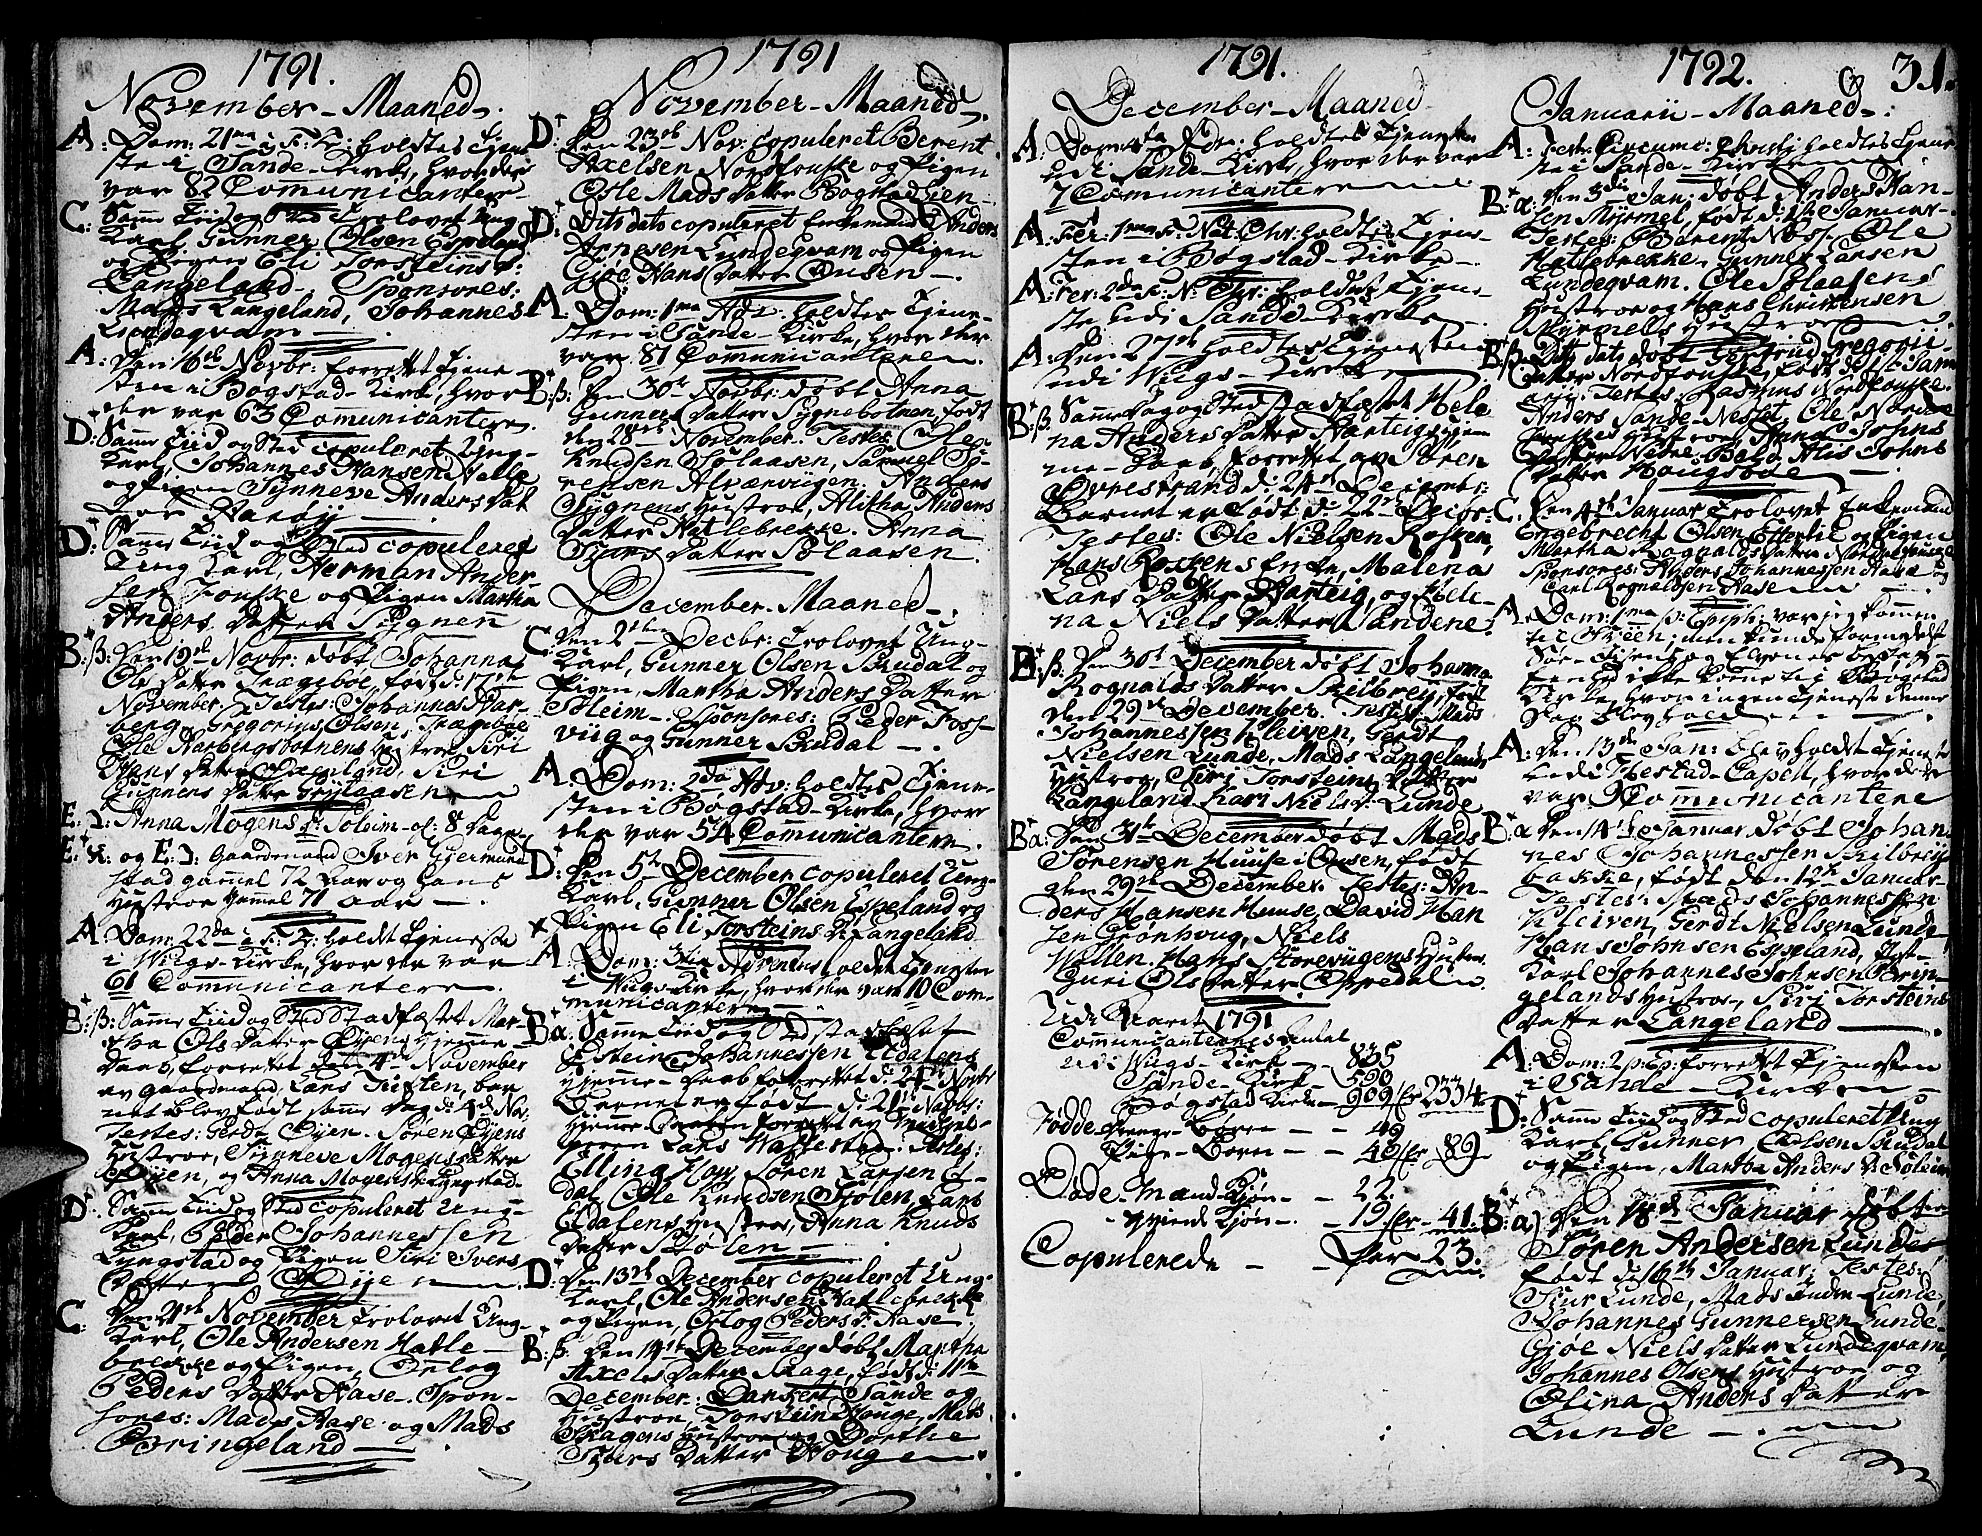 1791.
November - Maaned.
A: Dom: 21ma p. F. Tr: holdtes Tjene-
ste i Sande - Kirke, hvor der
var 82 Comunicantere
C: Samme Tiid og Sted Trolovet Ung-
Karl Gunner Olsen Espeland
og Pigen Eli Torsteins D:
Langeland. Sponsores:
Mads Langeland, Johannes
Lundeqvam
A: Den 16de Novbr: forrettet Tjene-
sten i Bogstad - Kirke, hvor
der var 63 Comunicantere
D: Samme Tiid og Sted copuleret Ung-
Karl, Johannes Hansen
og Pigen Synneve Anders Dat-
ter
D: Samme Tiid og Sted copuleret
Ung Karl, Herman Ander-
sen Fouske og Pigen Martha
Anders Datter Sygnen
B: ß: Den 19de Novbr: døbt Johanna
Ols Datter Trægeboe født d: 17de
November. Testes: Johannes Har-
berg, Gregorius Olsen Trægeboe
Ole Harbergsbotnens Hustroe, Siri
Hans Datter Langeland, Siri
Gunners Datter
E: I: Anna Mogens D: Soleim gl: 8 Dage
E: α: og E: I: Gaardmand Iver Gjermund-
stad gammel 72 Aar og hans
Hustroe gammel 71 aar
A: Dom: 22da p. F. Tr: holdt Tjeneste
i Wiigs - Kirke, hvor der var
61 Comunicantere
B: ß: Samme Tiid og Sted Stadfæstet Mar-
tha Ols Datter Øyens Hjemme-
Daab, forrettet den 4de November
av Gaardmand Lars Tuften, bar-
net blev født samme Dag d: 4de Nov.
Testes: Gerdt Øyen. Søren Øyens
Hustroe, Synneve Mogens Datter
Øyen, og Anna Mogens D:
D: Samme Tiid og Sted copuleret Ung-
Karl, Peder Johannessen
Lyngstad og Pigen Siri Ivers
Datter Øye
C: Den 21de November Trolovet Ung-
Karl, Ole Andersen Hatle-
brekke og Pigen, Orlog
Peders Datter Aase. Spon-
sores: Mads Aase og Mads
Bringeland
1791
November - Maaned.
D: Den 23de Nov: copuleret Berent
Axelsen Nordfouske og Pigen
Osle Mads Datter Bogstadlien
D: Dito dato copuleret Enkemand Anders
Arnesen Lundeqvam og Pigen
Gjøe Hans Datter Qusen
A: Dom: 1ma Adv: holdtes Tjene-
sten i Sande - Kirke, hvor der
var 81 Comunicantere
B: ß: Den 30te Novbr: døbt Anna
Gunners Datter Sygnebotnen, født
den 28de November. Testes: Ole
Knudsen Sølaasen, Samuel Sø-
rensen Alværviigen. Anders
Sygnens Hustroe, Alitha Anders
Datter Hatlebrekke. Anna
Siurs Datter Sølaasen
December - Maaned.
C: Den 2den Decbr: Trolovet Ung-
Karl, Gunner Olsen Skudal og
Pigen, Martha Anders Datter
Soleim. Sponsores: Peder Foss-
viig og Gunner Skudal
A: Dom: 2da Adv: holdtes Tjene-
sten i Bogstad - Kirke, hvor
der var 54 Comunicantere
D: Den 5te December copuleret Ung-
Karl, Gunner Olsen Espeland og
Pigen Eli Torsteins D: Langeland
A: Dom: 3tia Adventus holdt Tjenesten
i Wiigs Kirke, hvor der var 10 Com-
municantere
B: α: Samme Tiid og Sted stadfæstet
Østein Johannessen Eldalens
Hjemme - Daab forrettet d: 21de Novbr
Barnet er født d: 21de Novbr:
Hjemme-Daaben forrettet av
Lars Wallestad. Testes:
Elling Hov, Søren Larsen El-
dal, Ole Knudsen Stølen, Lars
Eldalens Hustroe, Anna Knuds
Datter Stølen
D: Den 13de December copuleret Ung-
Karl, Ole Andersen Hatlebrekke
og Pigen, Orlog Peders D: Aase.
B: ß: Den 14de December døbt Martha
Axels Datter Skage, født d: 11te
December. Danckert Sande og
Hustroe, Torstein Houge, Mads
Skagens Hustroe og Dorthe
Siurs Datter Hougen
1791.
December - Maaned
A: Dom: 4ta Adv: holdtes Tjenesten
udi Sande - Kirke, hvor der var
7 Comunicantere
A: Fer: 1ma F. Nat. Chr: holdtes Tjene-
sten i Bogstad - Kirke
A: Fer: 2da F: N: Chr: holdtes Tjene-
ste udi Sande - Kirke
A: Den 27de holdtes Tjenesten
udi Wiigs - Kirke
B: ß: Samme Dag og Sted stadfæstet Hele-
na Anders Datter Hartvigs Hjem-
me - Daab, forrettet av Søren
Øvrestrand d: 24de Decembr:
Barnet er født d: 22de Decbr:
Testes: Ole Nielsen Rosten,
Hans Rostens Enke, Malena
Lars Datter Hartvig, og Hele-
na Niels Datter Sandene.
B: ß: Den 30te December døbt Johanna
Rognalds Datter Skilbrey, født
den 29de December. Testes: Mads
Johannessen Kleiven, Gerdt
Nielsen Lunde, Mads Langelands
Hustroe, Siri Torsteins Datter
Langeland, Kari Niels D: Lunde
B: α: Den 31te December døbt Mads
Sørensen Huuse i Qusen, født
den 29de December. Testes: An-
ders Hansen Huuse, David Han-
sen Grønhoug, Niels
Wallen, Hans Storeviigens Hustroe
Guri Ols Datter Oppedal
Udi Aaret 1791
Communicanternes Antal
udi Wiigs - Kirke - 835
Sande - Kirke - 590
Bogstad Kirke - 909 er 2334
Fødde Drenge - Børn - 49
Pige - Børn - 40 er 89
Døde - Mand Kjøn - 22
Qvinde Kjøn - 19 er 41
Copulerede - Par 23.
1792. 31.
Januarii - Maaned.
A: Fest: Circumc: Christi holdtes Tjene-
sten i Sande - Kirke
B: α: Den 3die Jan: døbt Anders Han-
sen Myrmel, født d: 1ste Januar.
Testes: Berent Ness, Ole
Hatlebrekke, Gunner Larsen
Lundeqvam. Ole Solaasens
Hustroe og Hans Christensen
Myrmels Hustroe
B: ß: Dito dato døbt Gertrud Gregorii
Datter Nordfouske, født d: 1ste Janu-
arii. Testes: Rasmus Nordfouske.
Anders Sande - Nestet, Ole Nord-
fouskes Hustroe, Anna Johns
Datter Nedre - Bald, Alis Johns
Datter Hougsboe
C: Den 4de Januar Trolovet Enkemand
Engebrecht Olsen Espetvet og Pigen
Martha Rognalds Datter
Sponsores: Anders Johannessen Aase og
Carl Rognaldsen Aase
A: Dom: 1ma p: Epiph: var jeg kommen
til Skeen; men kunde formedelst
Søe-Iisens og Elvenes
ikke komme til Bogstad
Kirke, hvor ingen Tjeneste denne
Dag blev holdt
A: Den 13de Jan: blev holdt Tjeneste
udi Hestad - Capell, hvor der
var Communicantere
B: α: Den 14de Januar døbt Johan-
nes Johannessen Skilbrey-
bakke, født den 12te Januar.
Testes: Mads Johannessen
Kleiven, Gerdt Nielsen Lunde
Hans Johnsen Espeland, Post-
Karl Johannes Johnsen Brin-
gelands Hustroe, Siri Torsteins
Datter Langeland
A: Dom: 2 p: Ep: forrettet Tjenesten
i Sande - Kirken
D: Samme Tiid og Sted copuleret Ung
Karl Gunner Olsen Skudal
og Pigen, Martha Anders D: Soleim
B: a) Den 18de Januar døbt
Søren Andersen Lunde
født d: 16de Januar. Testes:
Siur Lunde, Mads Lunde
Johannes Gunnersen Lunde
Gjøe Niels Datter Lundeqvam,
Johannes Olsens Hustroe og
Olina Anders Datter
Lunde